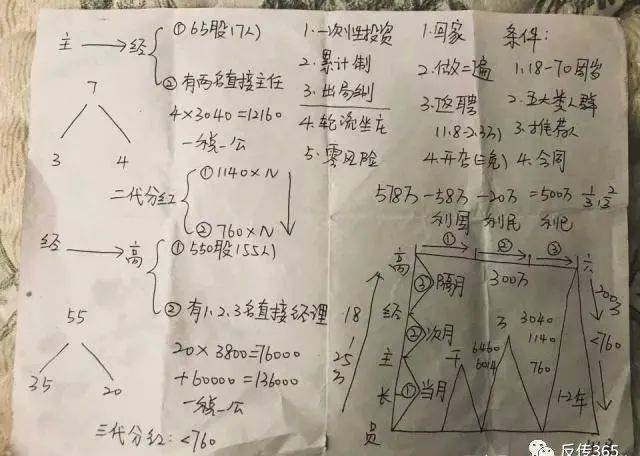 主 → 经
① 65股(7人)
② 有两名直接主任
4×3040=12160
一线一公
7
3 4
二代分红
① 1140×N
② 760×N
经 → 高
① 550股(55人)
② 有1.2.3名直接经理
20×3800=76000
+60000=136000
一线一公
55
35 20
三代分红:<760
1.一次性投资
2.累计制
3.出局制
4.轮流坐庄
5.零风险
1.回家
2.做二遍
3.返聘
(1.8-2.3万)
4.开店
条件:
1.18-70周岁
2.五大类人群
3.推荐人
4.合同
578万-58万-20万=500万
利国 利民 利己
高 ① ② ③
③隔月 300万
经
②次月
主
长 ①当月
员
18
25
万
6460
6014
3040
1140
760
<760
1-2年
反传365